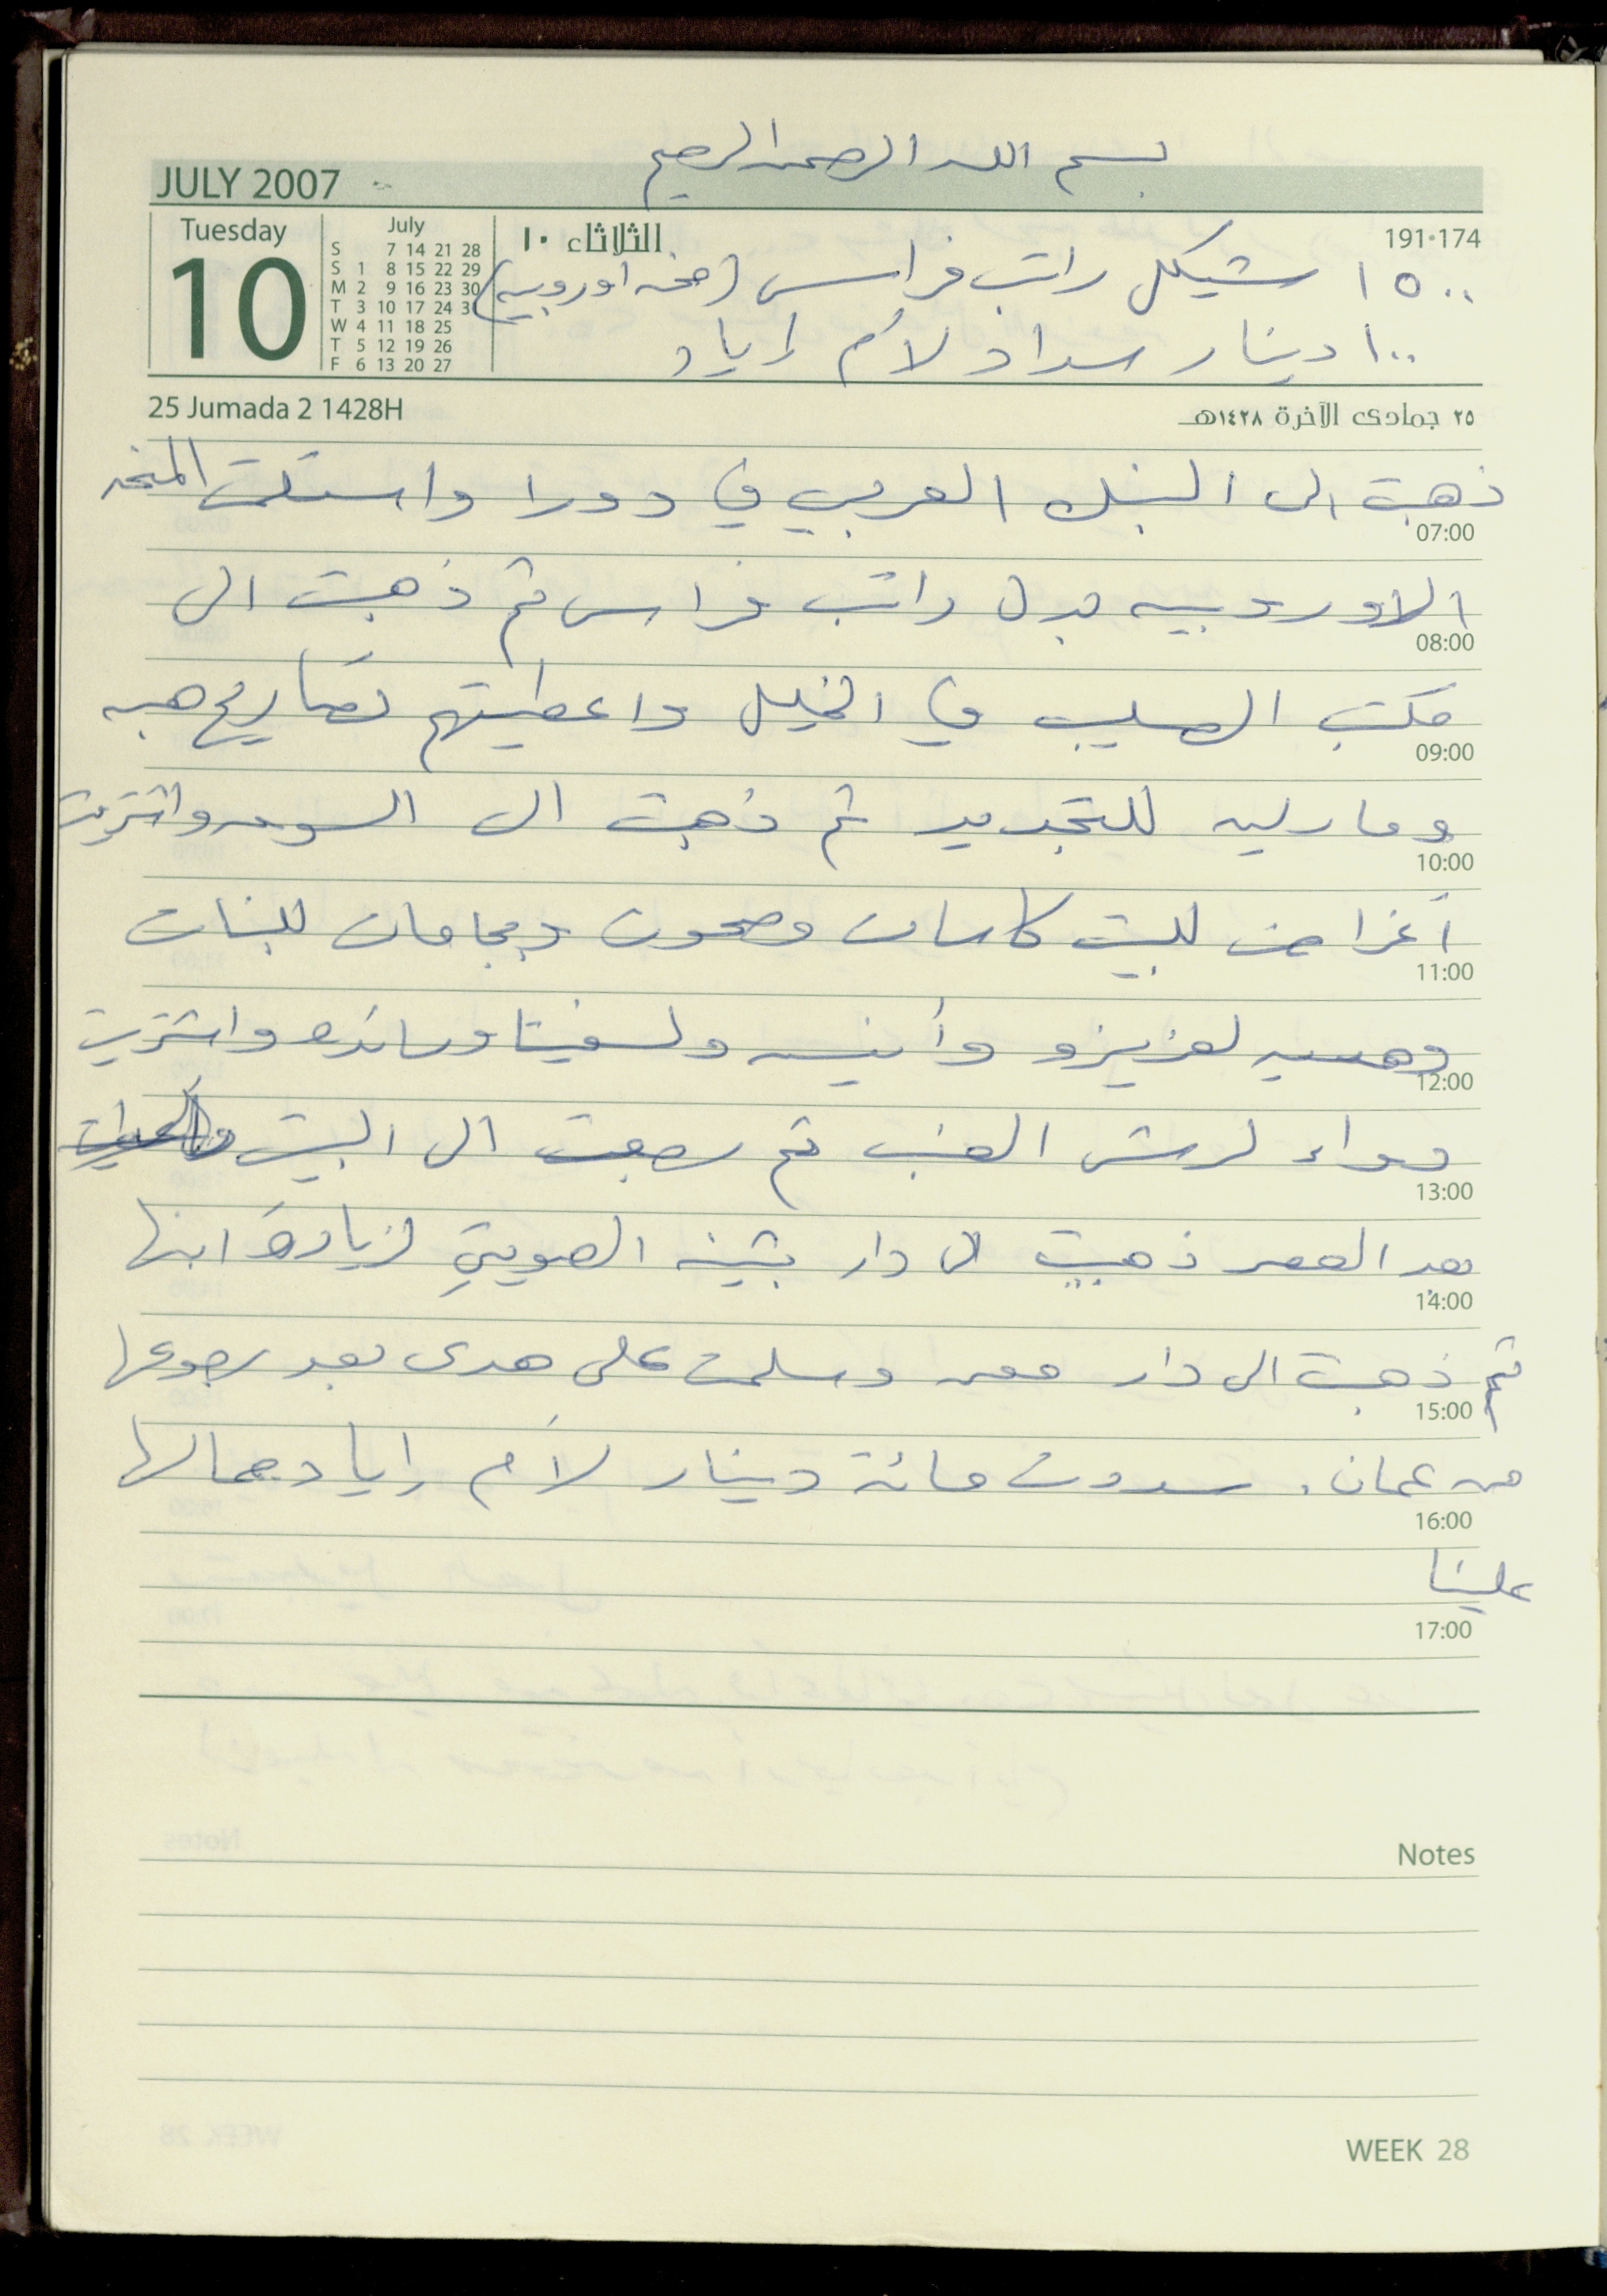 بسم الله الرحمن الرحيم
JULY 2007
Tuesday
10
July
S 7 14 21 28
S 1 8 15 22 29
M 2 9 16 23 30
T 3 10 17 24 3
W 4 11 18 25
T 5 12 19 26
F 6 13 20 27
الثلاثاء ١٠
191·174
١٥٠٠ شيكل راتب فراس (منحه اوروبيه)
١٠٠ دينار سداد لأم إياد
25 Jumada 2 1428H
٢٥ جمادى الآخرة ١٤٢٨هـ
ذهبت الى البنك العربي في دورا واستلمت المنحه
07:00
الاوروبيه بدل راتب فراس ثم ذهبت الى
08:00
مكتب الصليب في الخليل واعطيتهم تصاريح هبه
09:00
وماريه للتجديد ثم ذهبت الى السوق واشتريت
10:00
أغراض للبيت كاسات وصحون وبجامات للبنات
11:00
لعزيزه وأنيسه واشتريت
12:00
دواء لرش العنب ثم رجعت الى البيت
13:00
بعد العصر ذهبت الى دار بثينه الصويتي لزيارة ابنها
14:00
ثم ذهبت الى دار معن وسلمت على هدى بعد رجوعها
15:00
من عمان. سددت مائة دينار لأم إياد مالها
16:00
علينا
17:00
Notes
WEEK 28